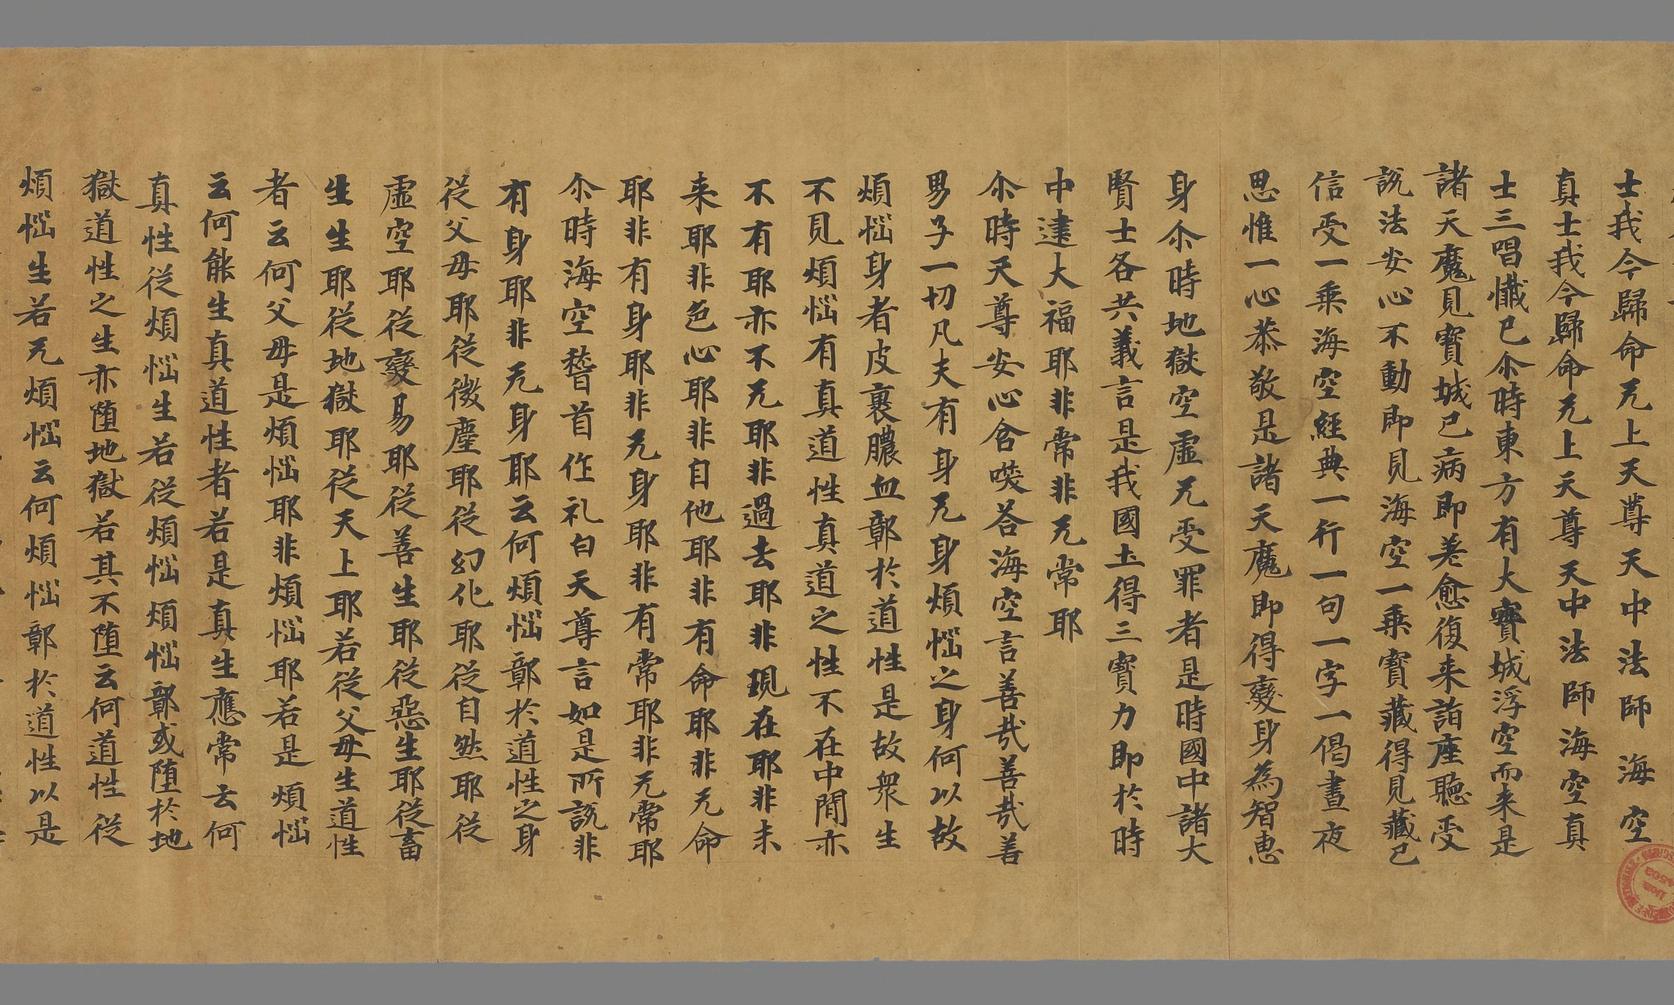 士我今歸命无上天尊天中法師海空
真士我今歸命无上天尊天中法師海空真
士三唱懺已尒時東方有大寶城浮空而来是
諸天魔見寶城已病即差愈復来詣座聽受
說法安心不動即見海空一乗寶藏得見藏已
信受一乗海空經典一行一句一字一偈晝夜
思惟一心恭敬是諸天魔即得變身為智恵
身尒時地獄空虛无受罪者是時國中諸大
賢士各共義言是我國土得三寶力即於時
中逮大福耶非常非无常耶
尒時天尊安心含唉荅海空言善哉善哉善
男子一切凡夫有身无身煩惱之身何以故
煩惱身者皮裹膿血鄣於道性是故衆生
不見煩惱有真道性真道之性不在中間亦
不有耶亦不无耶非過去耶非現在耶非未
来耶非色心耶非自他耶非有命耶非无命
耶非有身耶非无身耶非有常耶非无常耶
尒時海空瞽首作礼白天尊言如是所說非
有身耶非无身耶云何煩惱鄣於道性之身
從父母耶從微塵耶從幻化耶從自然耶從
虛空耶從變易耶從善生耶從惡生耶從畜
生生耶從地獄耶從天上耶若從父母生道性
者云何父母是煩惱耶非煩惱耶若是煩惱
云何能生真道性者若是真生應常云何
真性從煩惱生若從煩惱煩惱鄣或墮於地
獄道性之生亦墮地獄若其不墮云何道性從
煩惱生若无煩惱云何煩惱鄣於道性以是